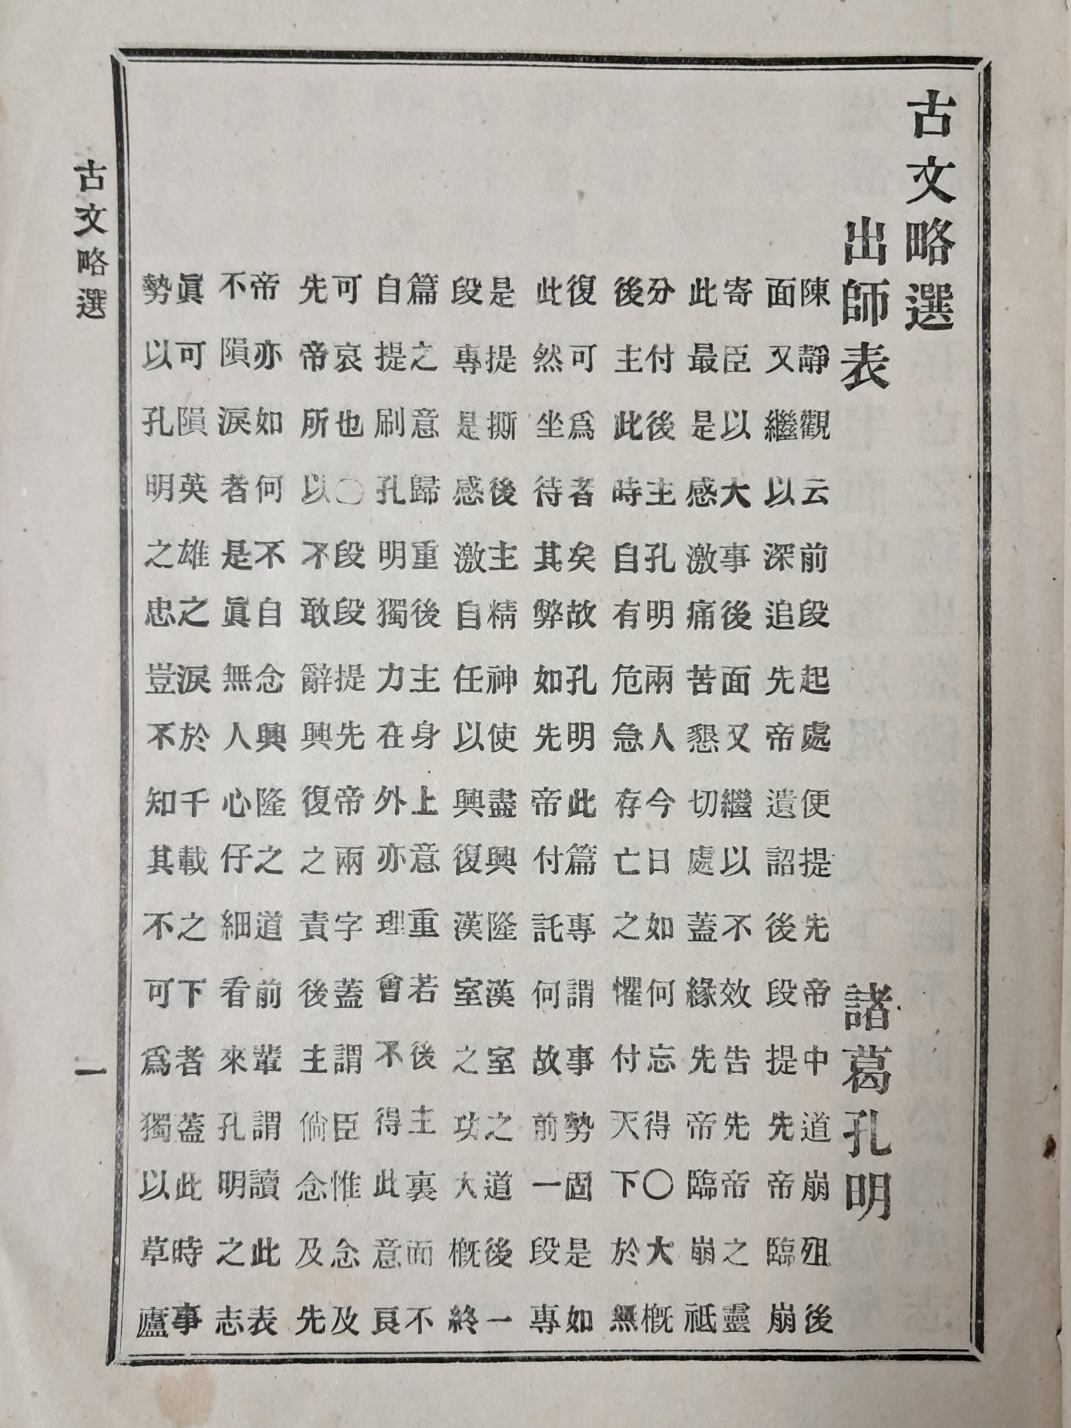 古文略選
出師表　諸葛孔明
陳靜觀云前段起處便提先帝中道崩殂後
面又繼以深追先帝遺詔後段提先帝臨崩
寄臣以大事後面又繼以不效告先帝之靈
此最是感激痛苦懇切處蓋緣先帝臨崩祇
分付後主孔明兩人今日如何忘得〇大槪
後主此時自有危急存亡之懼付天下於無
復可爲者矣故孔明此篇專謂事勢固是如
此然坐待其弊如先帝付託何故前一段專
是提撕後主精神使盡興隆漢室之道後一
段專是感激自任以興復漢室之功大槪終
篇之意歸重後主身上意重若後主裏面不
自提刷孔明獨力在外亦理會不得此意良
可哀也〇段段提先帝兩字蓋謂臣惟念及
先帝所以不敢辭興復之責後主倘念及先
帝亦如何不自念興隆之道前輩謂讀此表
不隕淚者是眞無人心仔細看來孔明之志
眞可隕英雄之淚於千載之下者蓋此時事
勢以孔明之忠豈不知其不可爲獨以草廬
古文略選
一